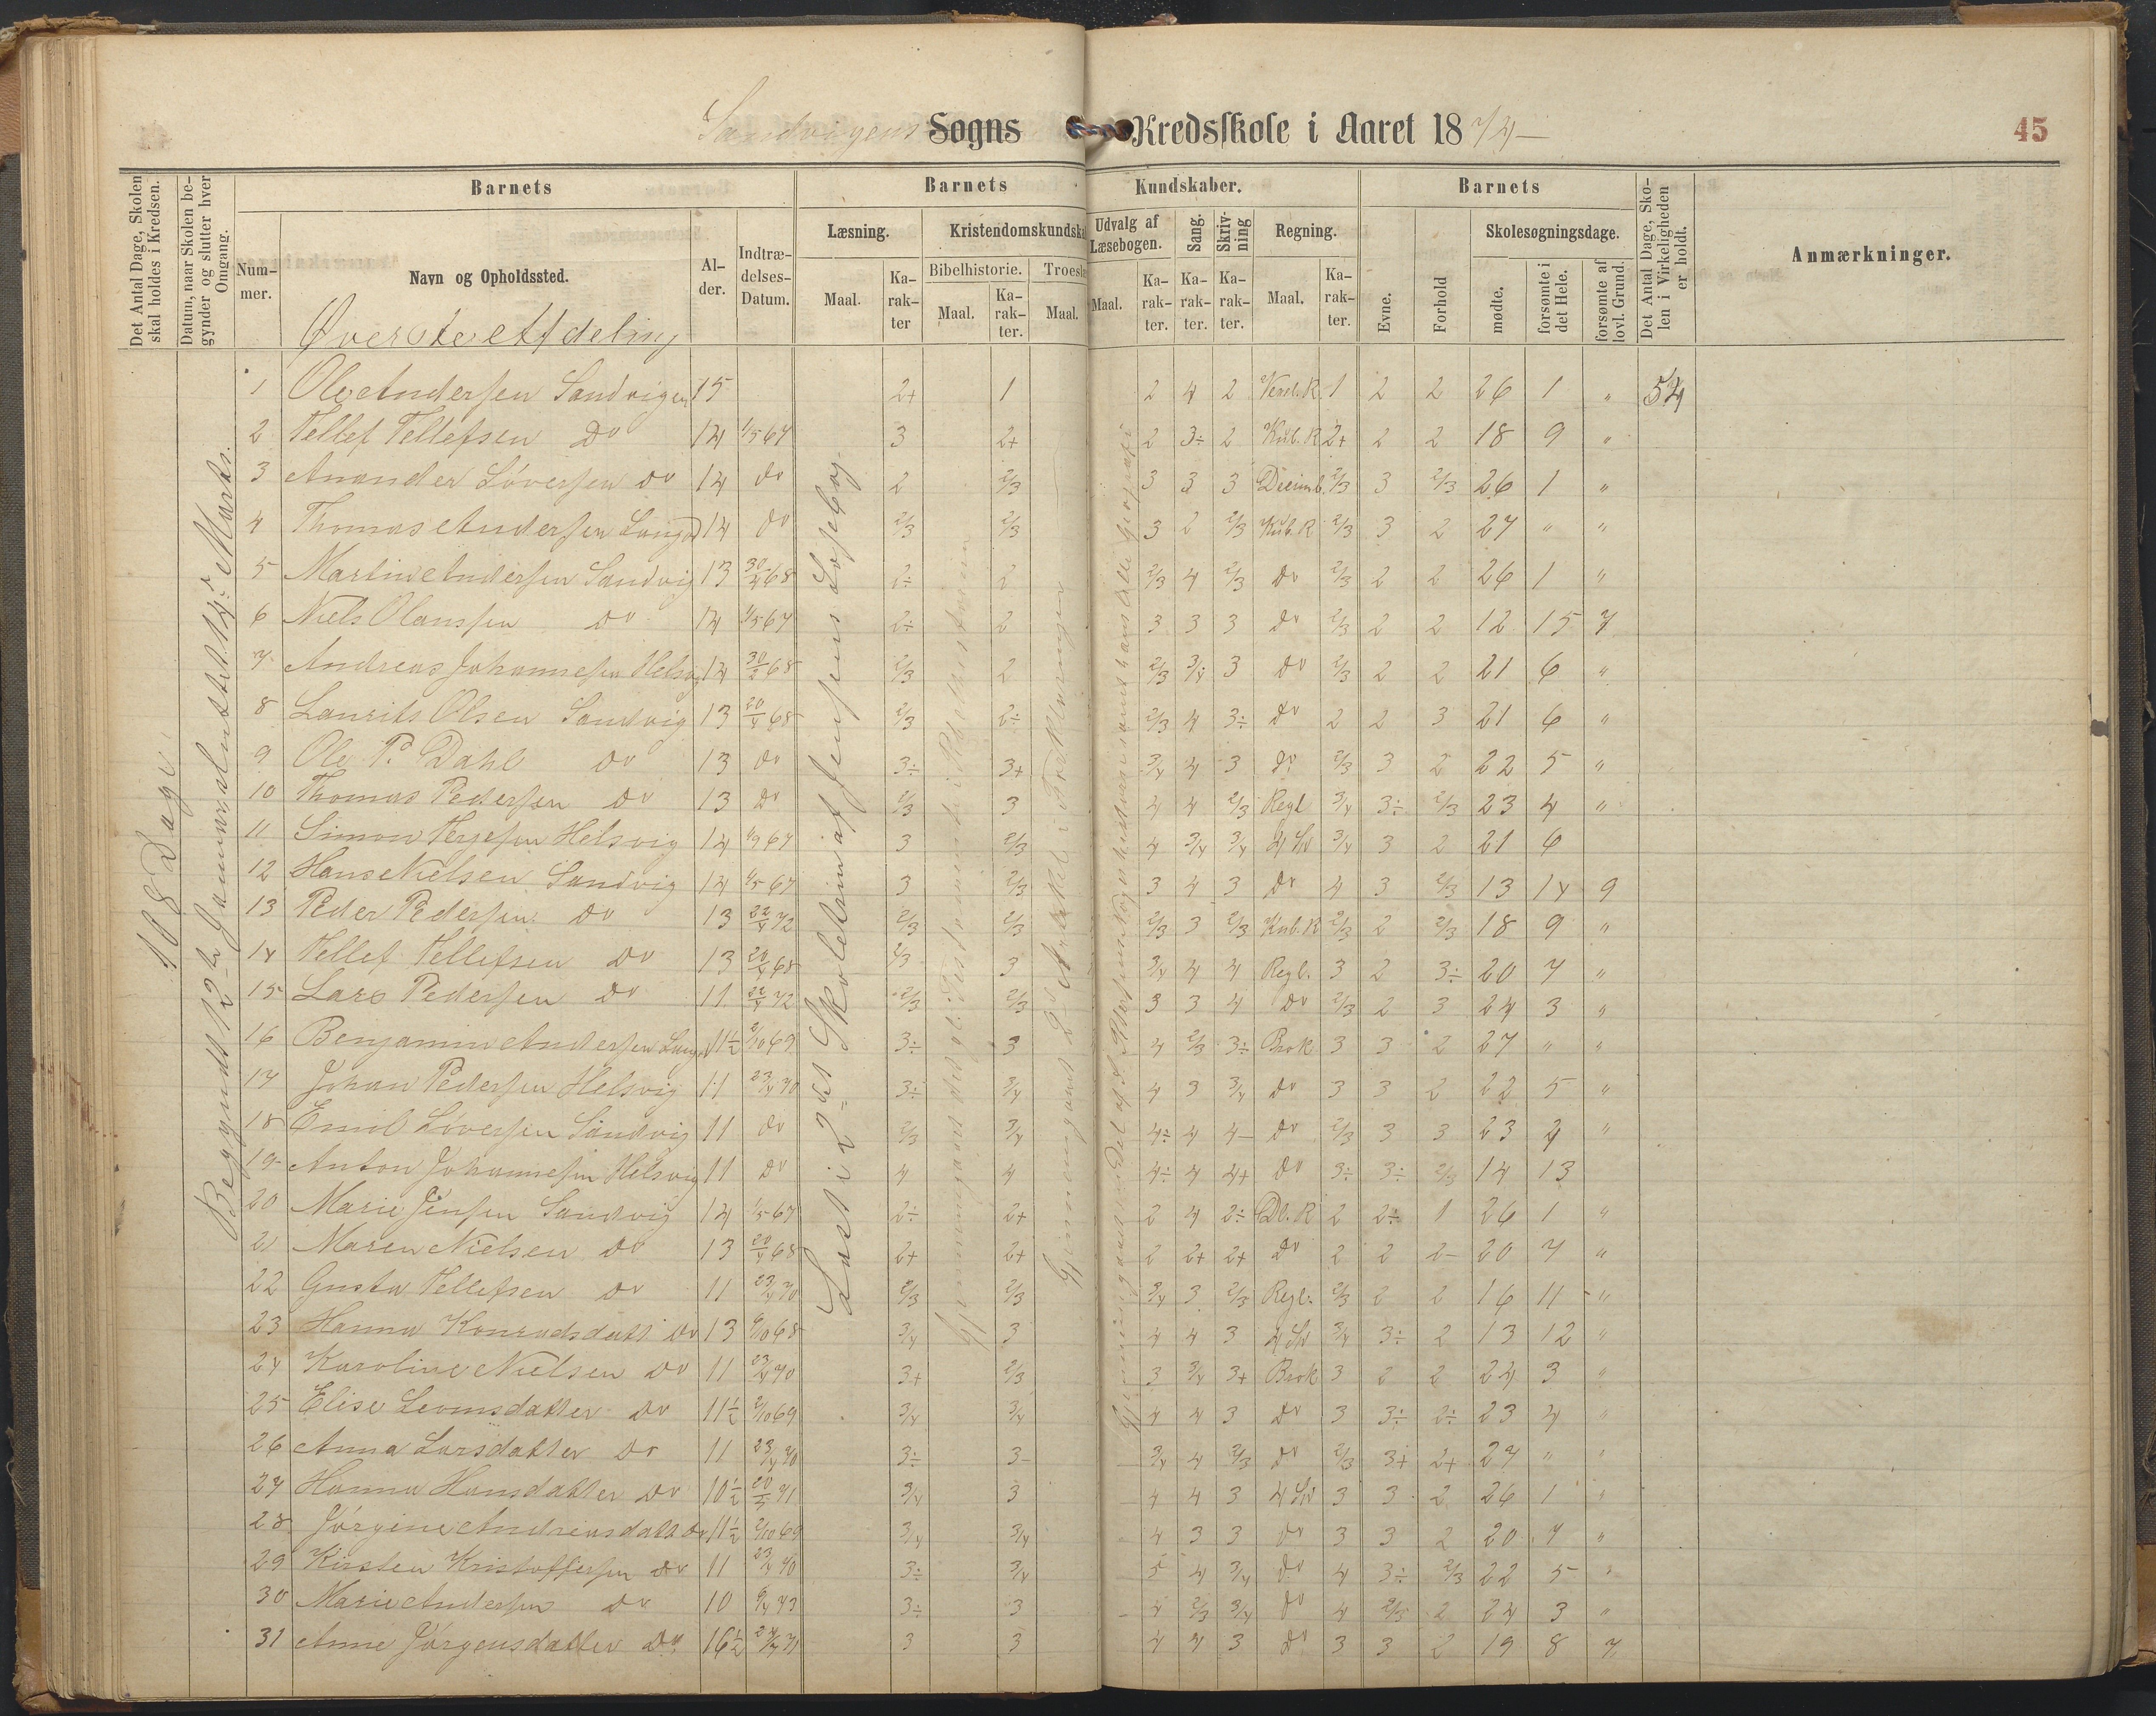 Sandvigens Sogns Kredsskole i Aaret 1874 45
Det Antal Dage, Skolen skal holdes i Kredsen.
Datum, naar Skolen begynder og slutter hver Omgang.
Barnets
Nummer.
Navn og Opholdssted.
Alder.
Indtrædelses-Datum.
Barnets Kundskaber.
Læsning.
Maal.
Karakter
Kristendomskundska
Bibelhistorie.
Maal.
Karakter.
Troeslæ
Maal.
Udvalg af Læsebogen.
Maal.
Karakter.
Sang.
Karakter.
Skrivning
Karakter.
Regning.
Maal.
Karakter.
Barnets
Evne.
Forhold
Skolesøgningsdage.
mødte.
forsømte i det Hele.
forsømte af lovl. Grund.
Det Antal Dage, Skolen i Virkeligheden er holdt.
Anmærkninger.
Øverste Afdeling
108 Dage
Begyndt 12te Januar sluttet 14de Marts.
Læst i 2det Skoletrin af Jensens Læsebog
1 Ole Andersen Sandvigen 15 2+ 1 2 4 2 1 2 2 26 1 " 54
2 Tellef Tellefsen Do 14 1/5 67 3 2+ 2 3÷ 2 Kub. R 2+ 2 2 18 9 "
3 Anander Löversen Do 14 Do 2 2/3 3 3 3 Decimb. 2/3 3 2/3 26 1 "
4 Thomas Andersen 14 Do 2/3 2/3 3 2 2/3 Kub. R 2/3 3 2 27 " "
5 Martin Andersen Sandvig 13 30/4 68 2÷ 2 2/3 4 2/3 Do 2/3 2 2 26 1 "
6 Niels Olanssen Do 14 1/5 67 2÷ 2 3 3 3 Do 2/3 2 2 12 15 7
7 Andreas Johannesen Helsvig 14 2/3 2 2/3 3/4 3 Do 2/3 2 2 21 6 "
8 Laurits Olsen Sandvig 13 20/4 68 2/3 2÷ 2/3 4 3÷ Do 2 2 3 21 6 "
9 Ole P. Dahl Do 13 Do 3÷ 3+ 3/4 4 3 Do 2/3 3 2 22 5 "
10 Thomas Pedersen Do 13 Do 2/3 3 4 4 2/3 Regl 3/4 3÷ 2/3 23 4 "
11 Simon Terjesen Helsvig 14 1/9 67 3 2/3 4 3/4 3/4 4 Sl 3/4 3 2 21 6
12 Hans Nielsen Sandvig 14 1/5 67 3 2/3 3 4 3 Do 4 3 2/3 13 14 9
13 Peder Pedersen Do 13 22/4 72 2/3 2/3 2/3 3 2/3 Kub. R 2/3 2 2/3 18 9 "
14 Tellef Tellefsen Do 13 20/4 68 2/3 3 3/4 4 4 Regl. 3 2 3÷ 20 7 "
15 Lars Pedersen Do 11 22/4 72 2/3 2/3 3 3 4 Do 2/3 2 3 24 3 "
16 Benjamin Andersen 11½ 2/10 69 3÷ 3 4 2/3 3÷ Brok 3 3 2 27 " "
17 Johan Pedersen Helsvig 11 23/4 70 3÷ 3/4 4 3 3/4 Do 3 3 2 22 5 "
18 Emil Löversen Sandvig 11 Do 2/3 3/4 4÷ 4 4- Do 2/3 3 3 23 4 "
19 Anton Johannesen Helsvig 11 Do 4 4 4÷ 4 4+ Do 3÷ 3÷ 2/3 14 13
20 Marie Jensen Sandvig 14 1/5 67 2÷ 2+ 2 4 2÷ 2 2÷ 1 26 1 "
21 Maren Nielsen Do 13 20/4 68 2+ 2+ 2 2+ 2+ Do 2 2 2- 20 7 "
22 Gusta Tellefsen Do 11 23/4 70 2/3 2/3 3/4 3 2/3 Regl. 2/3 2 2 16 11 "
23 Hanna Konradsdatt Do 13 6/10 68 3/4 3 4 4 3 4 Sl 3/4 3÷ 2 13 12 "
24 Karoline Nielsen Do 11 23/4 70 3+ 2/3 3 3/4 3+ Brok 3 2 2 24 3 "
25 Elise Leonsdatter Do 11½ 2/10 69 3/4 3/4 4 4 3 Do 3 3÷ 2÷ 23 4 "
26 Anna Larsdatter Do 11 23/4 70 3÷ 3- 3/4 4 2/3 Do 2/3 3+ 2+ 27 " "
27 Hanna Hansdatter Do 10½ 71 3/4 3 4 4 3 4 Sl 3 3 2 26 1 "
28 Jörgine Andreasdatt Do 11½ 2/10 69 3/4 3/4 4 3 3 Do 3 3 2 20 7 "
29 Kirsten Kristoffersen Do 11 23/4 70 3÷ 3/4 5 4 3/4 Do 4 3÷ 2/3 22 5 "
30 Marie Andersen Do 10 6/4 73 3÷ 3 4 2/3 3/4 Do 4 2/3 2 24 3 "
31 Anne Jörgensdatter Do 16½ 71 3 3 4 4 3 Do 3 3 2 19 8 7